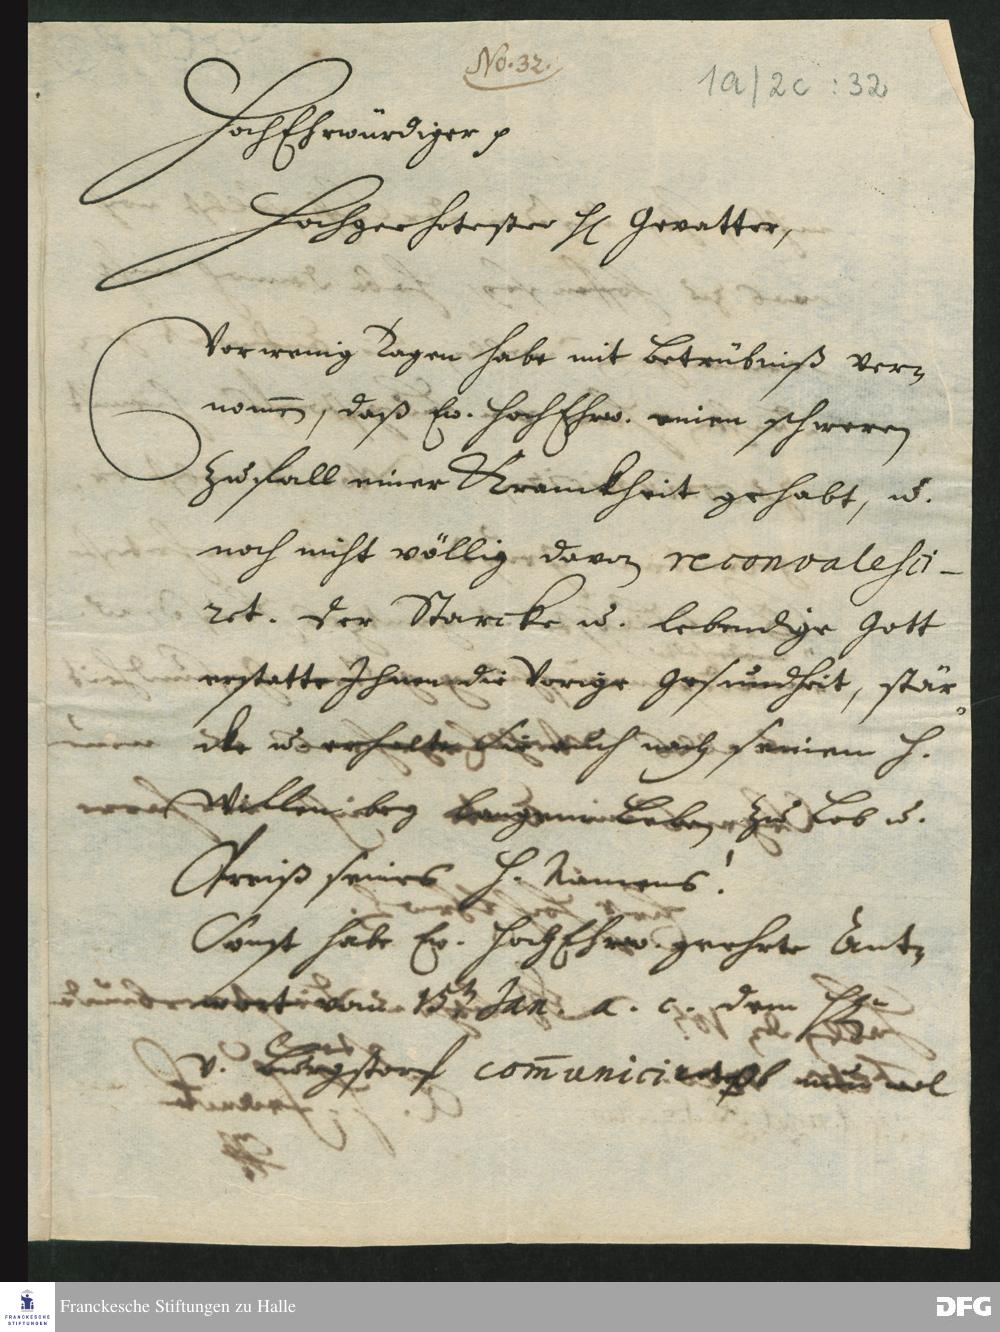 No. 32.
1a/2c : 32
HochEhrwürdiger p
Hochgeehrtester H. Gevatter,
Vor wenig Tagen habe mit Betrübniß ver-
nom̅en, daß Ew. HochEhrw. einen schweren
Zufall einer Kranckheit gehabt, u.
noch nicht völlig davon reconvalesci-
ret. Der Starcke u. lebendige Gott
erstatte Ihnen die Vorige Gesundheit, stär-
cke u. erhalte Sie auch nach seinem H.
Willen bey langem Leben zu Lob u.
Preiß seines H. Namens!
Sonst habe Ew. HochEhrw. geehrte Ant-
wort vom 15t. Jan. a. c. dem H.
v. Burgstorf com̅uniciret, ob nun wol
Franckesche Stiftungen zu Halle
FRANCKESCHE
STIFTUNGEN
DFG